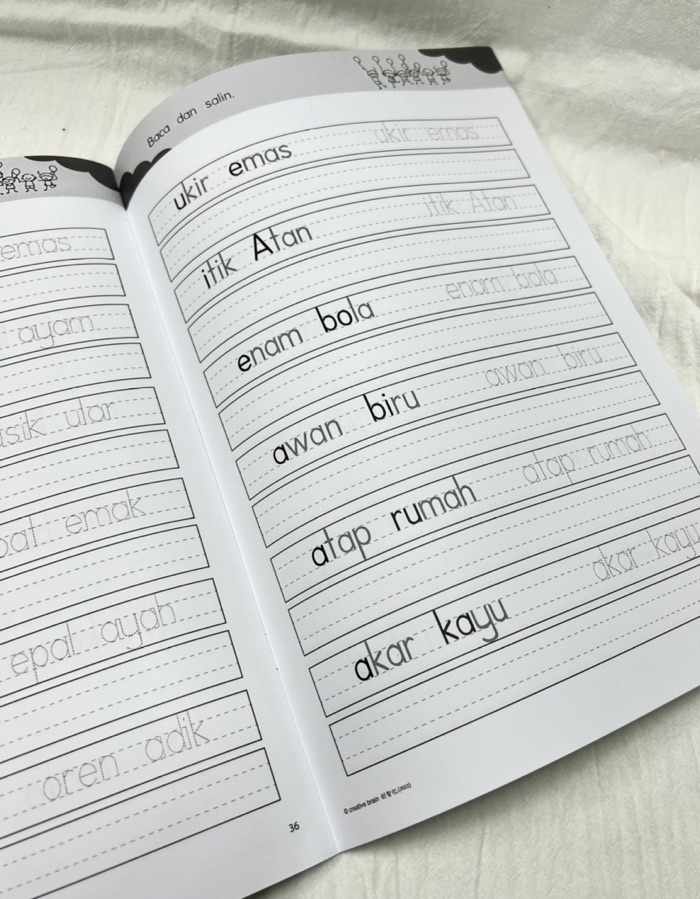 emas
ayam
ular
emak
epal ayah
oren adik
36
Baca dan salin.
ukir emas ukir emas
itik Atan itik Atan
enam bola enam bola
awan biru awan biru
atap rumah atap rumah
akar kayu akar kayu
© creative brain